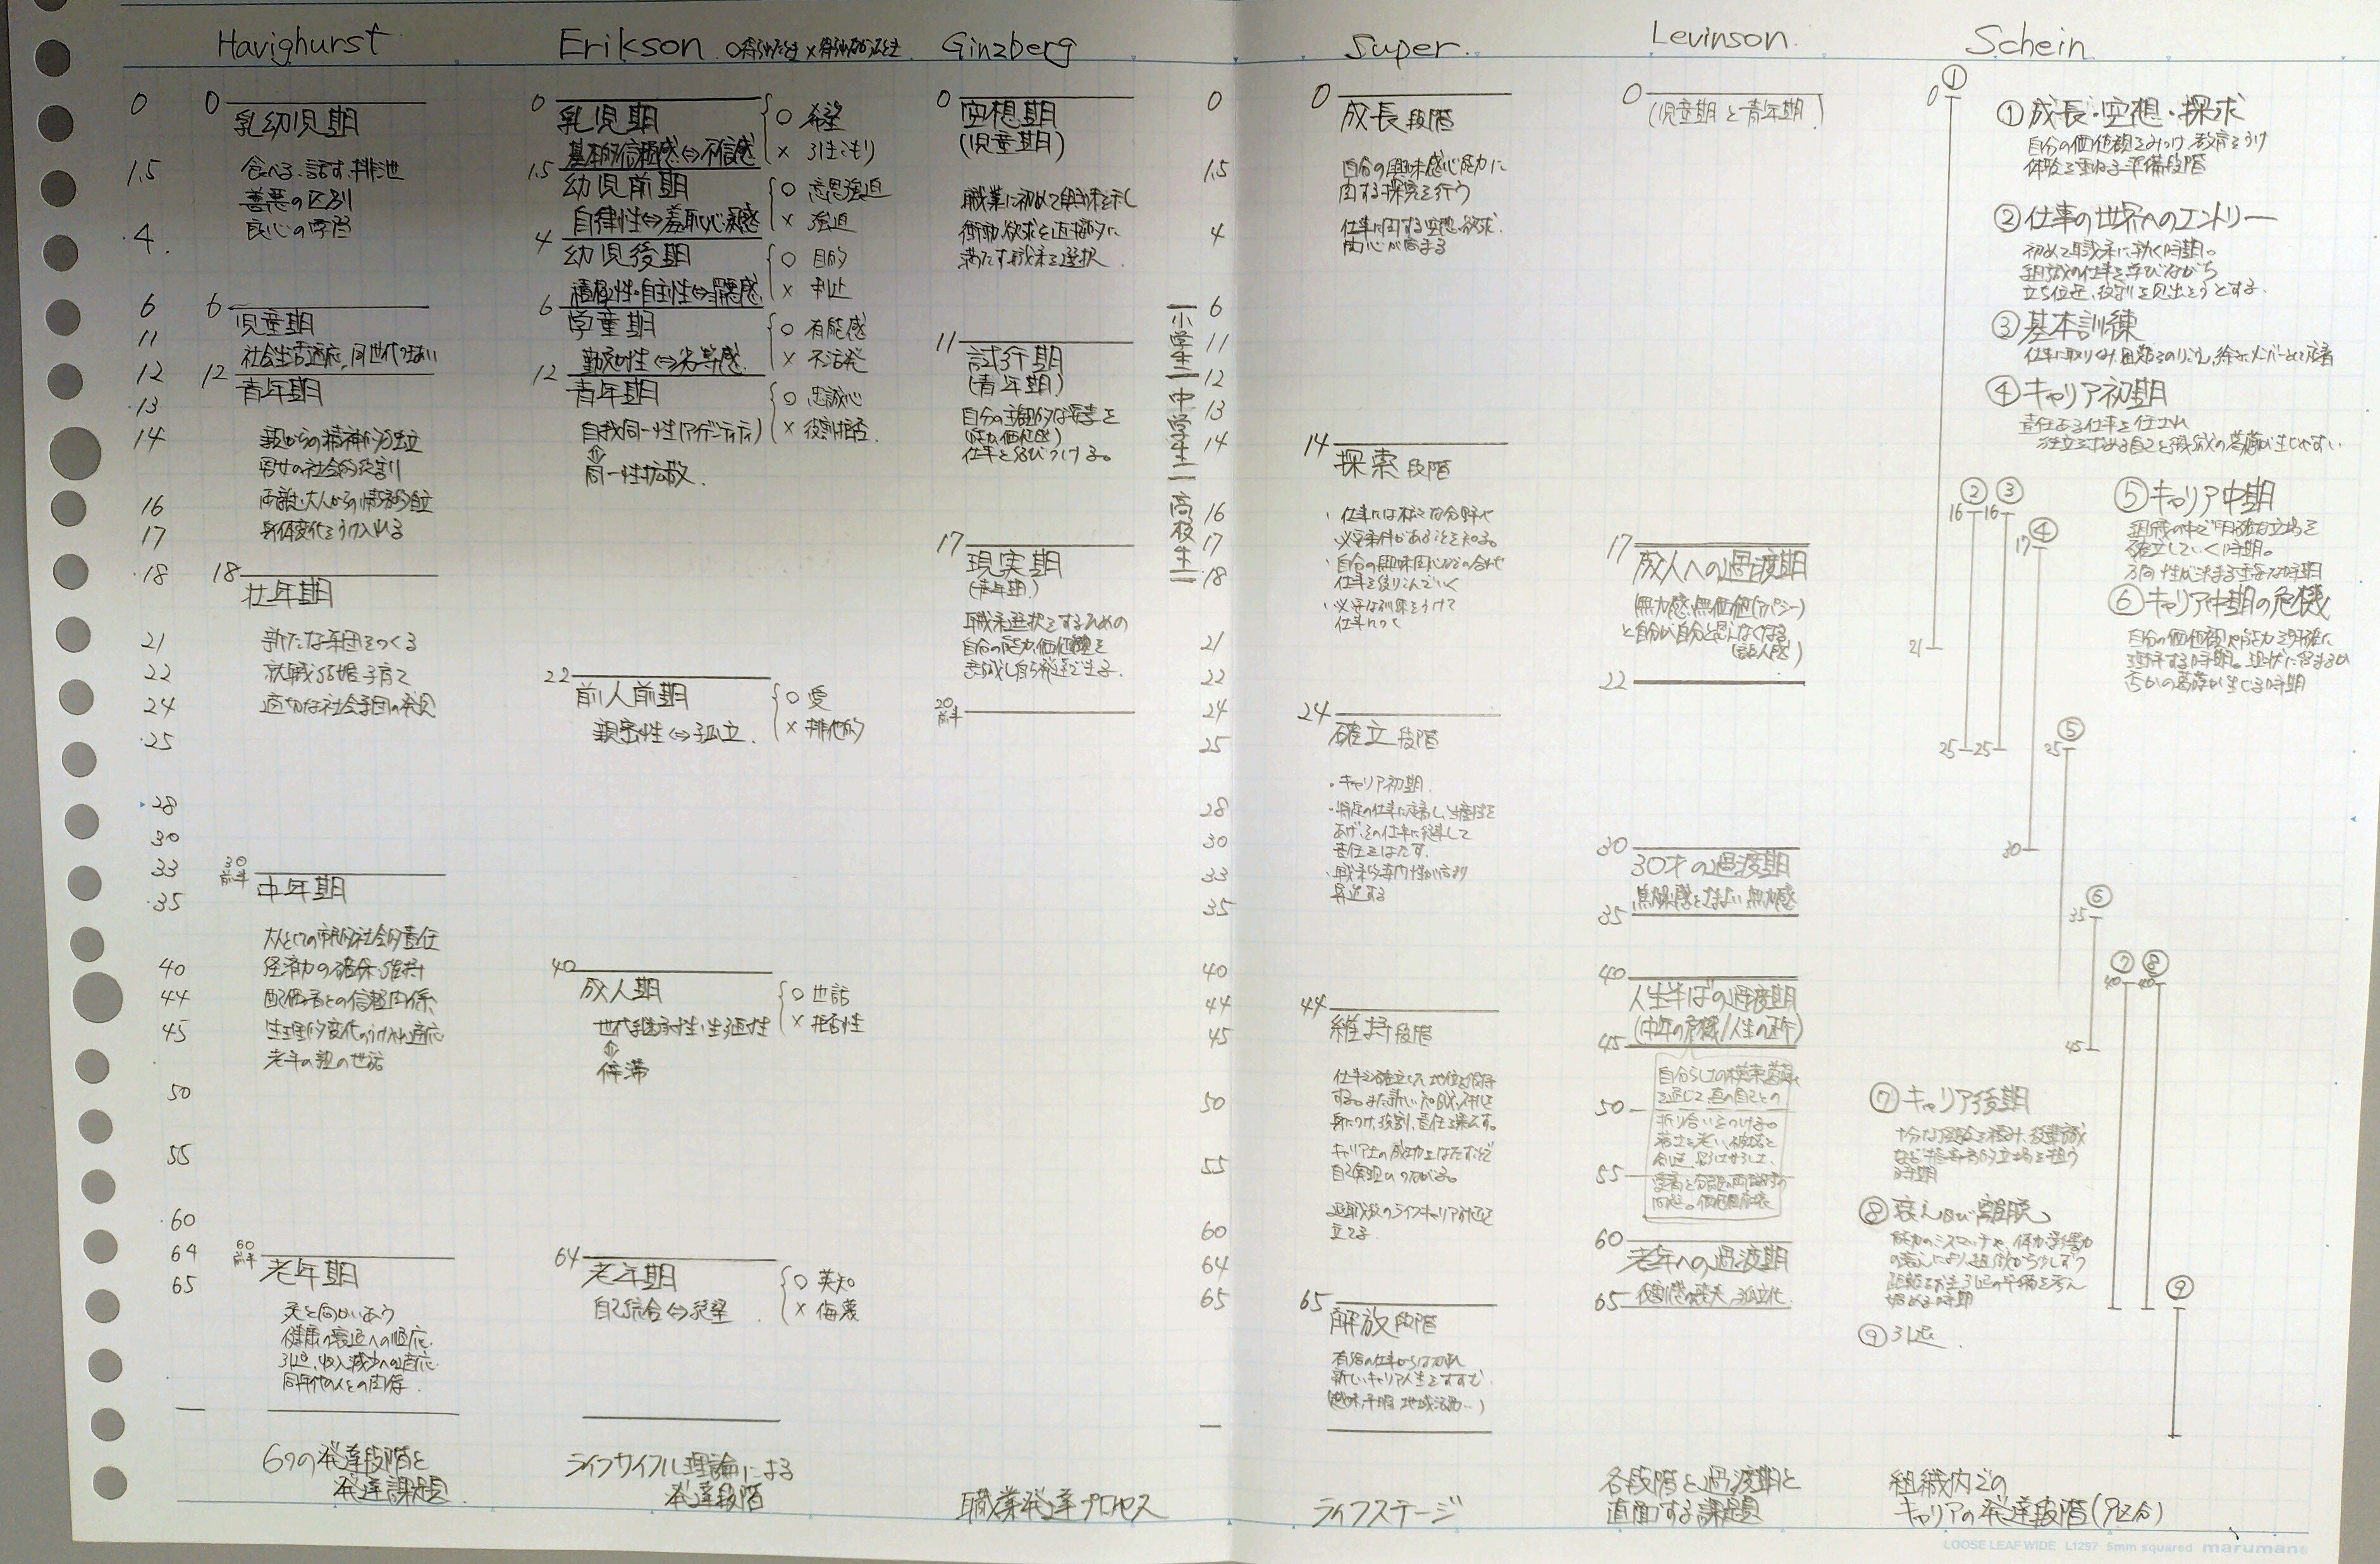 Havighurst
0
1.5
4
6
11
12
13
14
16
17
18
21
22
24
25
28
30
33
35
40
44
45
50
55
60
64
65
0
乳幼児期
食べる、話す、排泄
善悪の区別
良心の学習
6
児童期
社会生活適応、同世代
12
青年期
親からの精神的独立
男女の社会的役割
両親・大人からの情緒的自立
身体変化をうけ入れる
18
壮年期
新たな家団をつくる
就職、結婚、子育て
適切な社会集団の発見
30
前半
中年期
大人としての市民的社会的責任
経済力の確保、維持
配偶者との信頼関係
生理的変化のうけ入れ適応
老年の親の世話
60
前半
老年期
死と向かいあう
健康の衰退への適応
引退、収入減少への適応
同年代の人との関係
6つの発達段階と
発達課題
Erikson ○得られたとき ×得られなかったとき
0
乳児期
基本的信頼感⇔不信感
○ 希望
× 引きこもり
1.5
幼児前期
自律性⇔羞恥心、疑惑
○ 意思強迫
× 強迫
4
幼児後期
積極性・自主性⇔罪悪感
○ 目的
× 制止
6
学童期
勤勉性⇔劣等感
○ 有能感
× 不活発
12
青年期
自我同一性(アイデンティティ)
⇕
同一性拡散
○ 忠誠心
× 役割拒否
22
前人前期
親密性⇔孤立
○ 愛
× 排他的
40
成人期
世代継承性、生殖性
⇕
停滞
○ 世話
× 拒否性
64
老年期
自己統合⇔絶望
○ 英知
× 侮蔑
ライフサイクル理論による
発達段階
Ginzberg
0
空想期
(児童期)
職業に初めて興味を示し
衝動、欲求を直接的に
満たす職業を選択
11
試行期
(青年期)
自分の主観的な要素を
仕事と結びつける。
17
現実期
(青年期)
職業選択をするための
自分の能力、価値観を
20
前半
職業発達プロセス
0
1.5
4
6
11
12
13
14
16
17
18
21
22
24
25
28
30
33
35
40
44
45
50
55
60
64
65
小学生
中学生
高校生
Super
0
成長段階
自分の興味関心能力に
関する探究を行う
仕事に関する空想、欲求、
関心が高まる
14
探索段階
・仕事には様々な分野や
必要条件があることを知る。
・自分の興味関心などの合わせ
仕事を絞りこんでいく
・必要な訓練をうけて
仕事につく
24
確立段階
・キャリア初期
・特定の仕事に定着し、生産性を
あげ、その仕事に従事して
責任をはたす。
・職業的専門性が高まり
昇進する
44
維持段階
仕事を確立した地位を保持
する。また新しい知識、スキルを
身につけ、役割、責任を果たす。
キャリア上の成功をはたすことで
自己実現につながる。
退職後のライフキャリア計画を
立てる
65
解放段階
有給の仕事からはなれ
新しいキャリア人生をすすむ
(趣味、余暇、地域活動…)
ライフステージ
Levinson
0
(児童期と青年期)
17
成人への過渡期
無力感、無価値(アパシー)
と自分が自分と思えなくなる
22
30
30才の過渡期
35
40
人生半ばの過渡期
(中年の危機/人生の正午)
45
自分らしさの模索、葛藤
を通じて真の自己との
折り合いをつける。
若さと老い、破壊と
創造、男らしさ女らしさ、
愛着と分離の両極対立の
50
55
60
老年への過渡期
役割感の喪失、孤立化
65
各段階と過渡期と
直面する課題
Schein
①
0
21
①成長・空想・探求
自分の価値観をみつけ、教育をうけ
体験を重ねる準備段階
②仕事の世界へのエントリー
初めて職業に就く時期。
組織の仕事を学びながら
立ち位置、役割を見出そうとする
③基本訓練
仕事に取りくみ、困難をのりこえ、徐々にメンバーとして定着
④キャリア初期
責任ある仕事を任され
独立を求める自己と組織の葛藤が生じやすい
②
16
25
③
16
25
④
17
30
⑤キャリア中期
組織の中で明確な立場を
確立していく時期。
方向性が決まる重要な時期
⑥キャリア中期の危機
自分の価値観や能力を明確に
理解する時期。現状に留まるか
否かの葛藤が生じる時期
⑤
25
⑥
35
45
⑦
40
⑧
40
⑦キャリア後期
十分な経験を積み、役職
など指導的立場を担う
時期
⑧衰え及び離脱
能力のミスマッチや、体力、影響力
の衰えにより、組織から少しずつ
距離をおき引退の準備を考え
始める時期
⑨
⑨引退
組織内での
キャリアの発達段階(9区分)
LOOSE LEAF WIDE L1297 5mm squared maruman